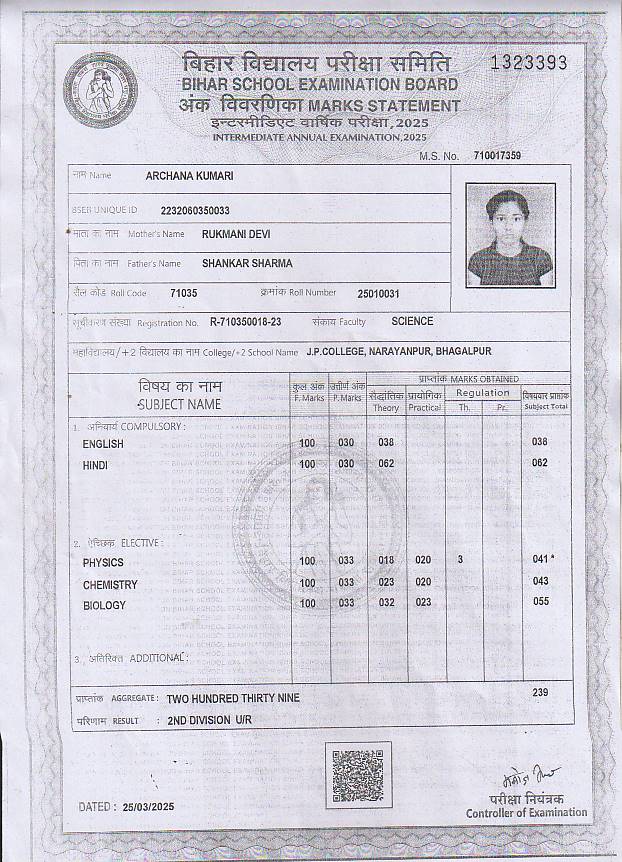 बिहार विद्यालय परीक्षा समिति 1323393
BIHAR SCHOOL EXAMINATION BOARD
अंक विवरणिका MARKS STATEMENT
इन्टरमीडिएट वार्षिक परीक्षा, 2025
INTERMEDIATE ANNUAL EXAMINATION, 2025
M.S. No. 710017359
नाम Name ARCHANA KUMARI
BSEB UNIQUE ID 2232060350033
माता का नाम Mother's Name RUKMANI DEVI
पिता का नाम Father's Name SHANKAR SHARMA
रौल कोड Roll Code 71035 क्रमांक Roll Number 25010031
सूचीकरण संख्या Registration No. R-710350018-23 संकाय Faculty SCIENCE
महाविद्यालय/+2 विद्यालय का नाम College/+2 School Name J.P.COLLEGE, NARAYANPUR, BHAGALPUR
विषय का नाम कुल अंक उत्तीर्ण अंक प्राप्तांक MARKS OBTAINED
SUBJECT NAME F. Marks P.Marks सैद्धांतिक Theory प्रायोगिक Practical Regulation Th. Pr. विषयवार प्राप्तांक Subject Total
1. अनिवार्य COMPULSORY :
ENGLISH 100 030 038 038
HINDI 100 030 062 062
2. ऐच्छिक ELECTIVE :
PHYSICS 100 033 018 020 3 041 *
CHEMISTRY 100 033 023 020 043
BIOLOGY 100 033 032 023 055
3. अतिरिक्त ADDITIONAL :
प्राप्तांक AGGREGATE : TWO HUNDRED THIRTY NINE 239
परिणाम RESULT : 2ND DIVISION U/R
DATED : 25/03/2025
परीक्षा नियंत्रक
Controller of Examination